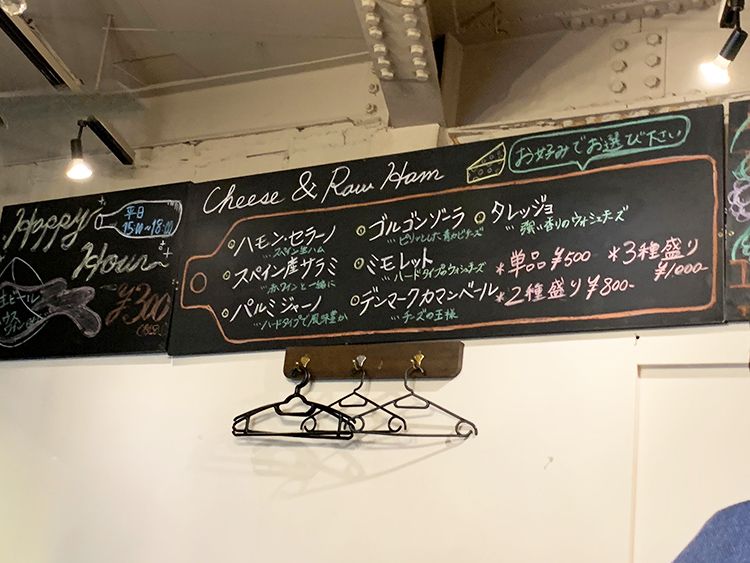 Happy
Hour
平日
15:00~18:00
¥300
Cheese & Raw Ham
お好みでお選び下さい
ハモン・セラーノ
…スペイン生ハム
スペイン産サラミ
…赤ワインと一緒に
パルミジャーノ
…ハードタイプで風味豊か
ゴルゴンゾーラ
…ピリッとした青カビチーズ
ミモレット
…ハードタイプのウォッシュチーズ
デンマークカマンベール
…チーズの王様
タレッジョ
強い香りのウォッシュチーズ
*単品¥500
*2種盛り¥800-
*3種盛り
¥1000-